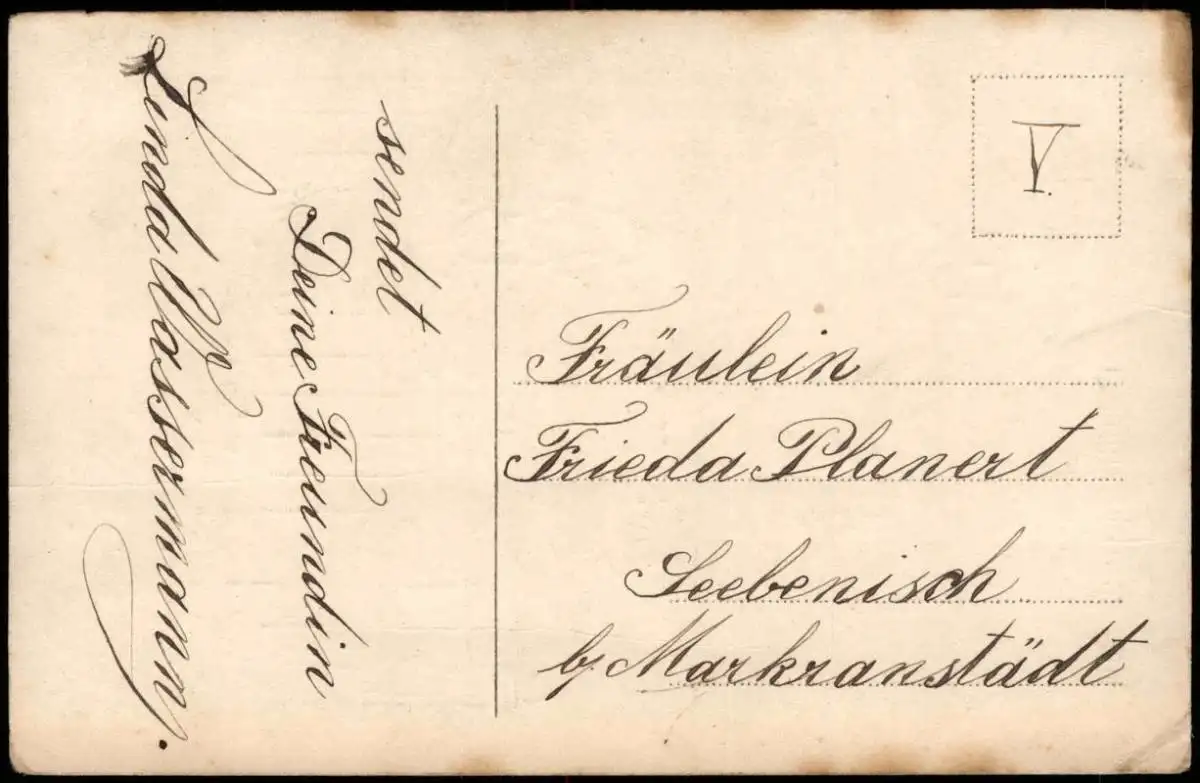 sendet
Deine Freundin
Linda Wassermann.
V.
Fräulein
Frieda Planert
Seebenisch
b/ Markranstädt